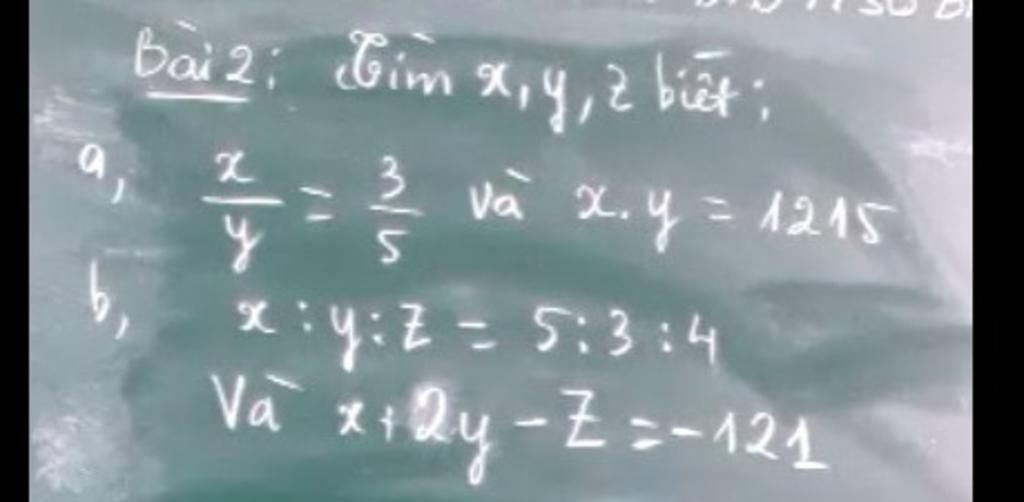 Bài 2: Tìm x, y, z biết:
a, x/y = 3/5 và x.y = 1215
b, x : y : z = 5 : 3 : 4
Và x + 2y - z = -121